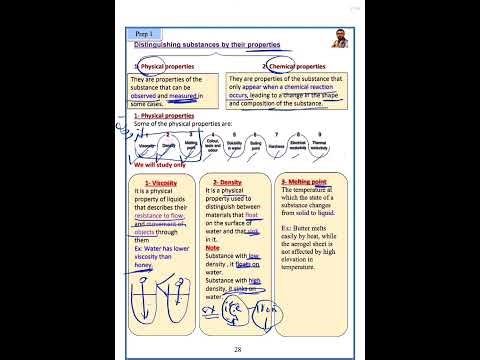 Prep 1
Distinguishing substances by their properties
1- Physical properties
They are properties of the
substance that can be
observed and measured in
some cases.
2- Chemical properties
They are properties of the substance that
only appear when a chemical reaction
occurs, leading to a change in the shape
and composition of the substance.
1- Physical properties
Some of the physical properties are:
1 2 3 4 5 6 7 8 9
Viscosity
Density
Melting point
Colour, taste and odour
Solubility in water
Boiling point
Hardness
Electrical conductivity
Thermal conductivity
We will study only
1- Viscosity
It is a physical
property of liquids
that describes their
resistance to flow,
and movement of
objects through
them
Ex: Water has lower
viscosity than
honey.
2- Density
It is a physical
property used to
distinguish between
materials that float
on the surface of
water and that sink
in it.
Note
Substance with low
density , it floats on
water.
Substance with high
density, it sinks on
water.
ex ice iron
3- Melting point
The temperature at
which the state of a
substance changes
from solid to liquid.
Ex: Butter melts
easily by heat, while
the aerogel sheet is
not affected by high
elevation in
temperature.
28